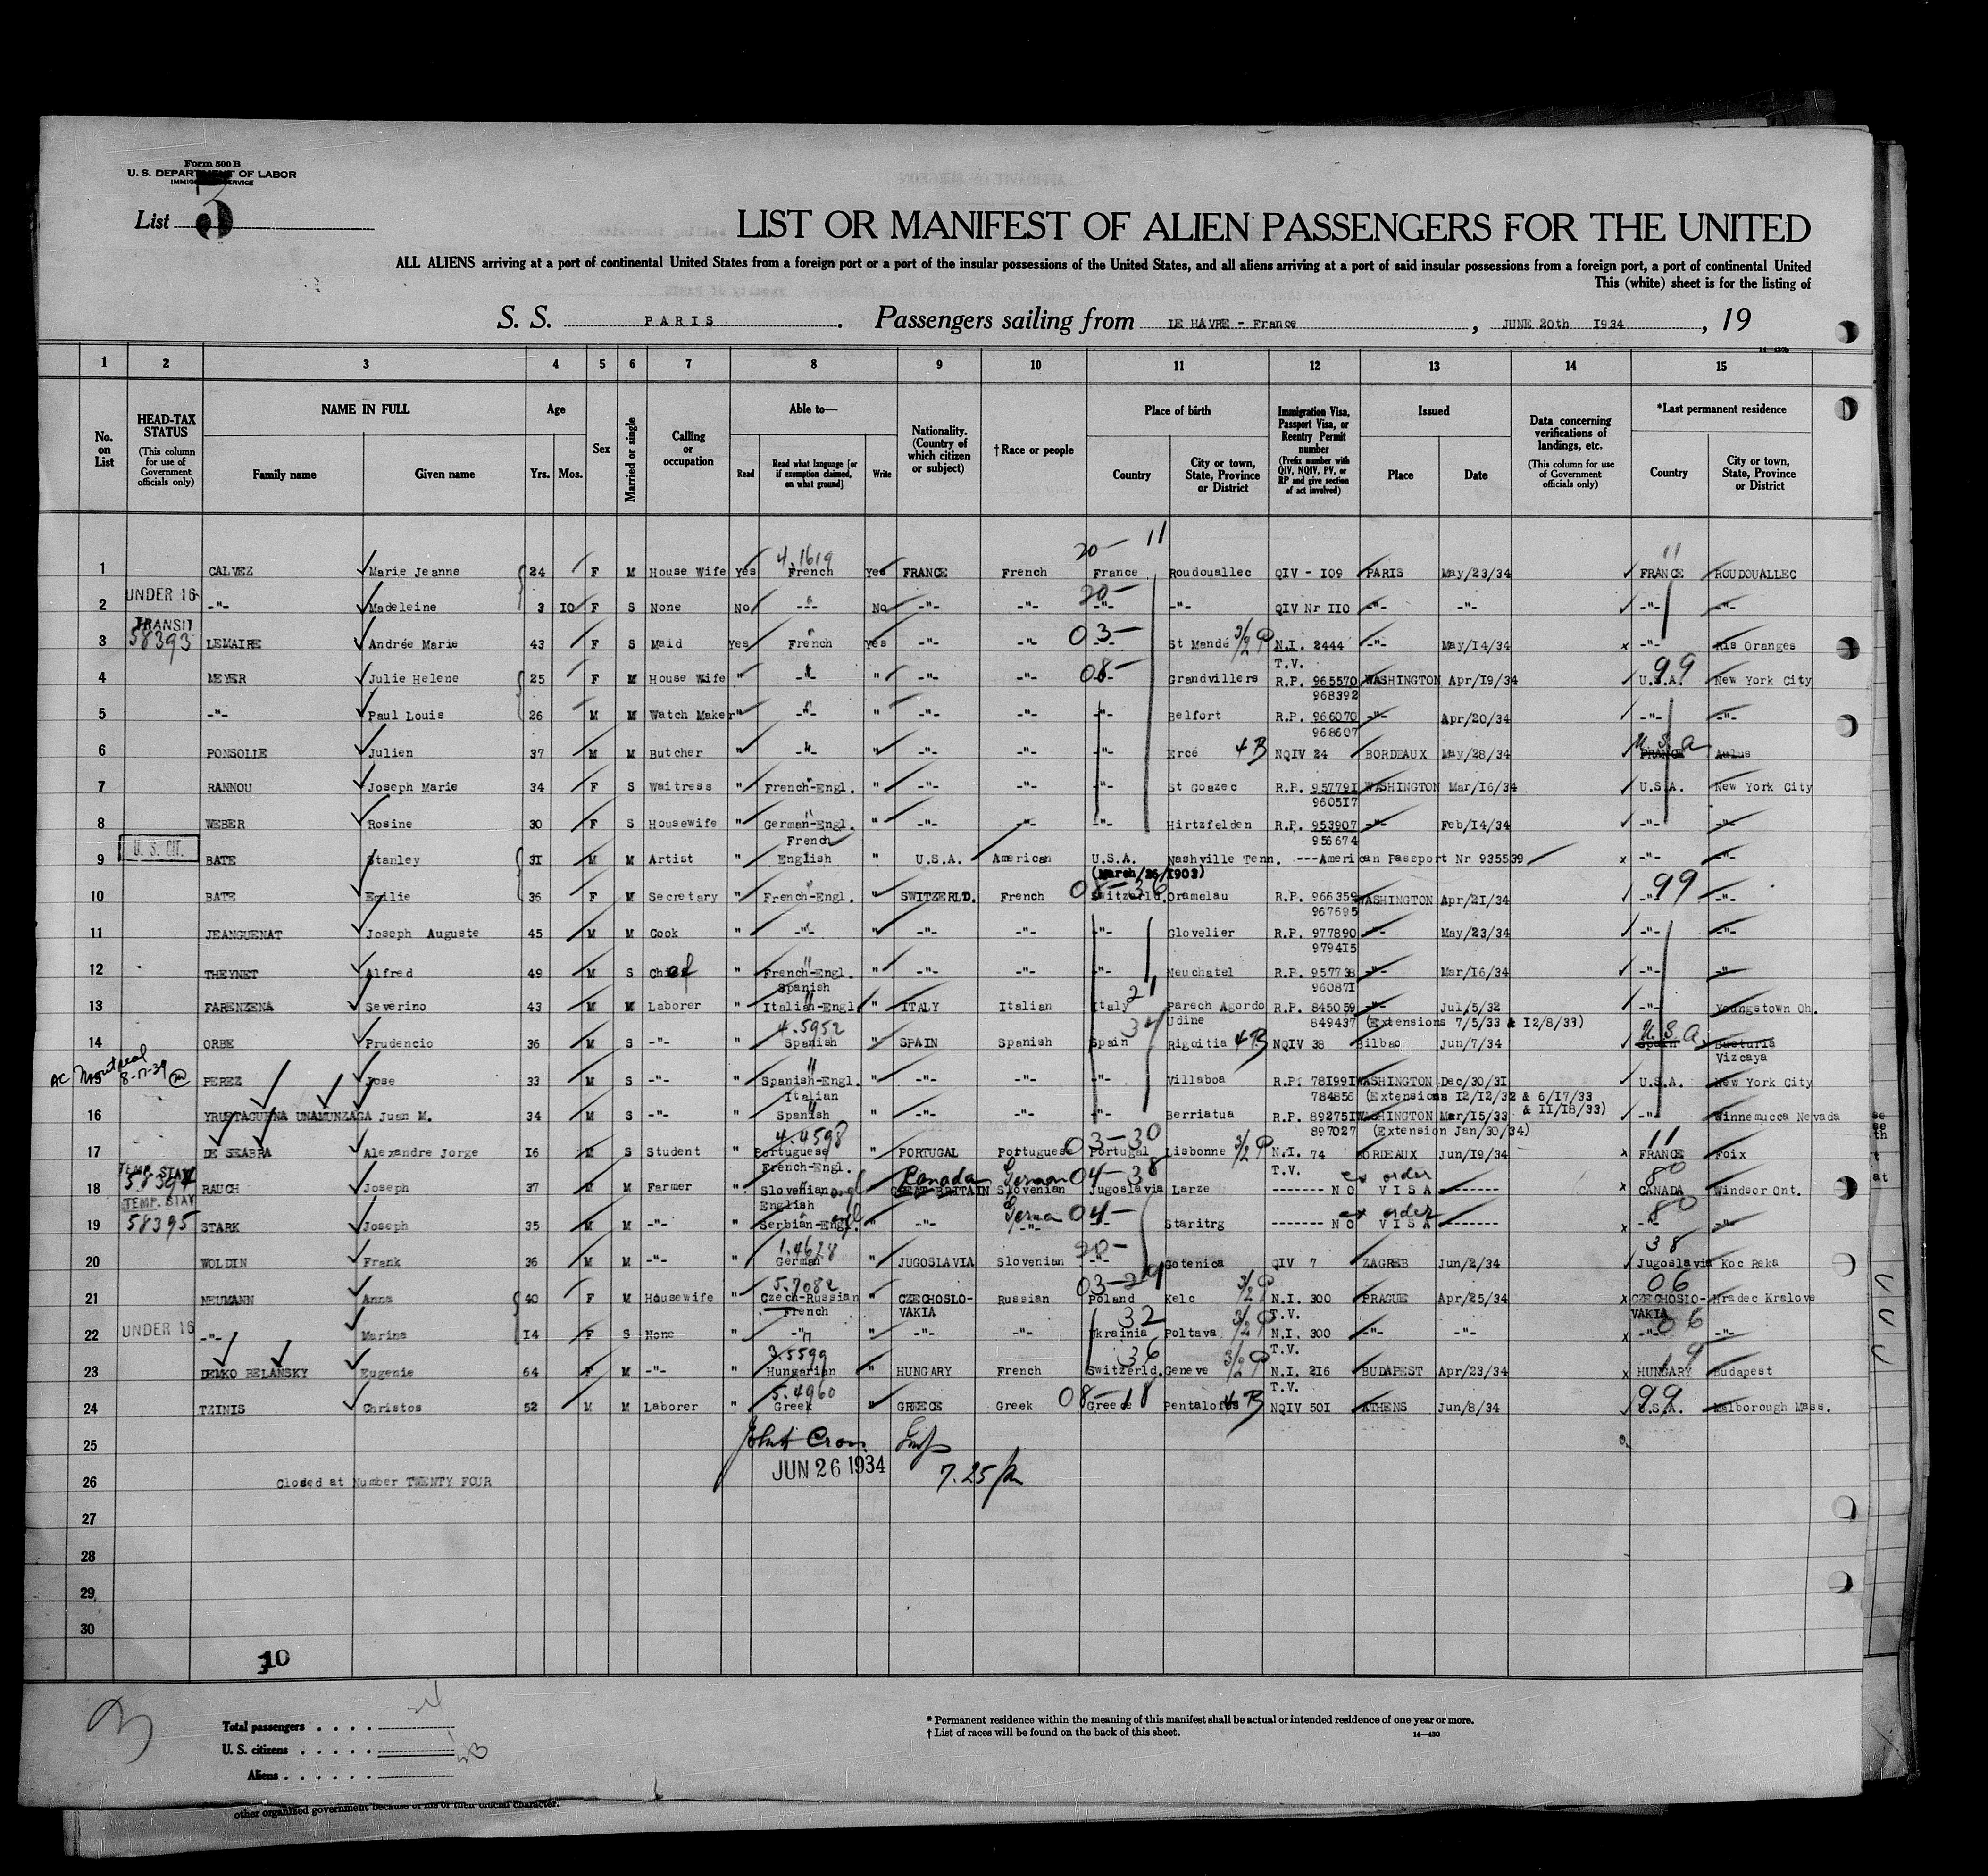 Form 500 B
U. S. DEPARTMENT OF LABOR
IMMIGRATION SERVICE
List 3
LIST OR MANIFEST OF ALIEN PASSENGERS FOR THE UNITED
ALL ALIENS arriving at a port of continental United States from a foreign port or a port of the insular possessions of the United States, and all aliens arriving at a port of said insular possessions from a foreign port, a port of continental United
This (white) sheet is for the listing of
S. S. PARIS. Passengers sailing from LE HAVRE - France, JUNE 20th I934, 19
1 2 3 4 5 6 7 8 9 10 11 12 13 14 15
No. on List
HEAD-TAX STATUS (This column for use of Government officials only)
NAME IN FULL Family name Given name
Age Yrs. Mos.
Sex
Married or single
Calling or occupation
Able to— Read Read what language [or if exemption claimed, on what ground] Write
Nationality. (Country of which citizen or subject)
† Race or people
Place of birth Country City or town, State, Province or District
Immigration Visa, Passport Visa, or Reentry Permit number (Prefix number with QIV, NQIV, PV, or RP and give section of act involved)
Issued Place Date
Data concerning verifications of landings, etc. (This column for use of Government officials only)
*Last permanent residence Country City or town, State, Province or District
20— 11
4.1619 11
1 CALVEZ Marie Jeanne 24 F M House Wife Yes French Yes FRANCE French France Roudouallec QIV - I09 PARIS May/23/34 FRANCE ROUDOUALLEC
UNDER 16 20—
2 -"- Madeleine 3 IO F S None No --- No -"- -"- -"- -"- QIV Nr IIO -"- -"- -"- -"-
TRANSIT 58393
3 LEMAIRE Andrée Marie 43 F S Maid Yes French Yes -"- -"- 03— -"- St Mandé 3/2 P N.I. 2444 -"- May/I4/34 x -"- Ris Oranges
T.V.
4 MEYER Julie Helene 25 F M House Wife " -"- " -"- -"- 08— Grandvillers R.P. 965570 WASHINGTON Apr/I9/34 U.S.A. 99 New York City
968392
5 -"- Paul Louis 26 M M Watch Maker " -"- " -"- -"- -"- Belfort R.P. 966070 -"- Apr/20/34 -"- -"-
968607
6 PONSOLLE Julien 37 M M Butcher " -"- " -"- -"- -"- Ercé 4 B NQIV 24 BORDEAUX May/28/34 FRANCE U.S.A Aulus
7 RANNOU Joseph Marie 34 F S Waitress " French-Engl. " -"- -"- -"- St Goazec R.P. 95779I WASHINGTON Mar/I6/34 U.S.A. New York City
9605I7
8 WEBER Rosine 30 F S Housewife " German-Engl. " -"- -"- -"- Hirtzfelden R.P. 953907 -"- Feb/I4/34 -"- -"-
French 956674
U. S. CIT.
9 BATE Stanley 3I M M Artist " English " U.S.A. American U.S.A. Nashville Tenn. ---American Passport Nr 935539 x -"- -"-
(March/26/I903)
10 BATE Emilie 36 F M Secretary " French-Engl. " SWITZERLD. French 08—36 Switzerld. Oramelau R.P. 966359 WASHINGTON Apr/2I/34 -"- 99 -"-
967695
11 JEANGUENAT Joseph Auguste 45 M M Cook " -"- " -"- -"- -"- Glovelier R.P. 977890 -"- May/23/34 -"- -"-
9794I5
12 THEYNET Alfred 49 M S Chief " French-Engl. " -"- -"- -"- Neuchatel R.P. 957738 -"- Mar/I6/34 -"- -"-
Spanish 96087I
13 FARENZENA Severino 43 M M Laborer " Italian-Engl. " ITALY Italian Italy 21 Parech Agordo R.P. 845059 -"- Jul/5/32 -"- Youngstown Oh.
Udine 849437 (Extensions 7/5/33 & I2/8/33)
4.5952
14 ORBE Prudencio 36 M S -"- " Spanish " SPAIN Spanish Spain 34 Rigoitia 4 B NQIV 38 Bilbao Jun/7/34 Spain U.S.A Busturia
Vizcaya
AC Montreal 8-17-39
15 PEREZ Jose 33 M S -"- " Spanish-Engl. " -"- -"- -"- Villaboa R.P. 78I99I WASHINGTON Dec/30/3I U.S.A. New York City
Italian 784856 (Extensions I2/I2/32 & 6/I7/33 & II/I8/33)
16 YRUSTAGUENA UNAMUNZAGA Juan M. 34 M S -"- " Spanish " -"- -"- -"- Berriatua R.P. 89275I WASHINGTON Mar/I5/33 -"- Winnemucca Nevada
897027 (Extension Jan/30/34)
4.4598
17 DE SEABRA Alexandre Jorge I6 M S Student " Portuguese " PORTUGAL Portuguese 03—30 Portugal Lisbonne 3/2 P N.I. 74 BORDEAUX Jun/I9/34 x FRANCE 11 Foix
French-Engl. T.V.
TEMP. STAY 58394
18 RAUCH Joseph 37 M M Farmer " Slovenian Engl " GREAT BRITAIN Canada Slovenian German 04—38 Jugoslavia Larze ------- NO VISA ex order ------- x CANADA 80 Windsor Ont.
English
TEMP. STAY 58395
19 STARK Joseph 35 M M -"- " Serbian-Engl. " -"- -"- 04— -"- Staritrg ------- NO VISA ex order ------- x -"- 80 -"-
1.4628
20 WOLDIN Frank 36 M M -"- " German " JUGOSLAVIA Slovenian 20— -"- Gotenica QIV 7 ZAGREB Jun/2/34 Jugoslavia 38 Koc Reka
5.7082
21 NEUMANN Anna 40 F M Housewife " Czech-Russian " CZECHOSLOVAKIA Russian 03—29 Poland Kelc 3/2 P N.I. 300 PRAGUE Apr/25/34 x CZECHOSLOVAKIA 06 Hradec Kralove
French T.V.
UNDER 16
22 -"- Marina I4 F S None " -"- " -"- -"- 32 Ukrainia Poltava 3/2 P N.I. 300 -"- -"- x -"- 06 -"-
T.V.
3.5599
23 DEMKO BELANSKY Eugenie 64 F M -"- " Hungarian " HUNGARY French 36 Switzerld. Geneve 3/2 P N.I. 2I6 BUDAPEST Apr/23/34 x HUNGARY 19 Budapest
T.V.
5.4960
24 TZINIS Christos 52 M M Laborer " Greek " GREECE Greek 08—18 Greece Pentalofos 4 B NQIV 50I ATHENS Jun/8/34 U.S.A. 99 Malborough Mass.
25
JUN 26 1934 7.25 pm
26 Closed at Number TWENTY FOUR
27
28
29
30
10
Total passengers . . . . 24
U. S. citizens . . . . . 1
Aliens . . . . . . 23
* Permanent residence within the meaning of this manifest shall be actual or intended residence of one year or more.
† List of races will be found on the back of this sheet. 14—430
other organized government because of his or their official character.